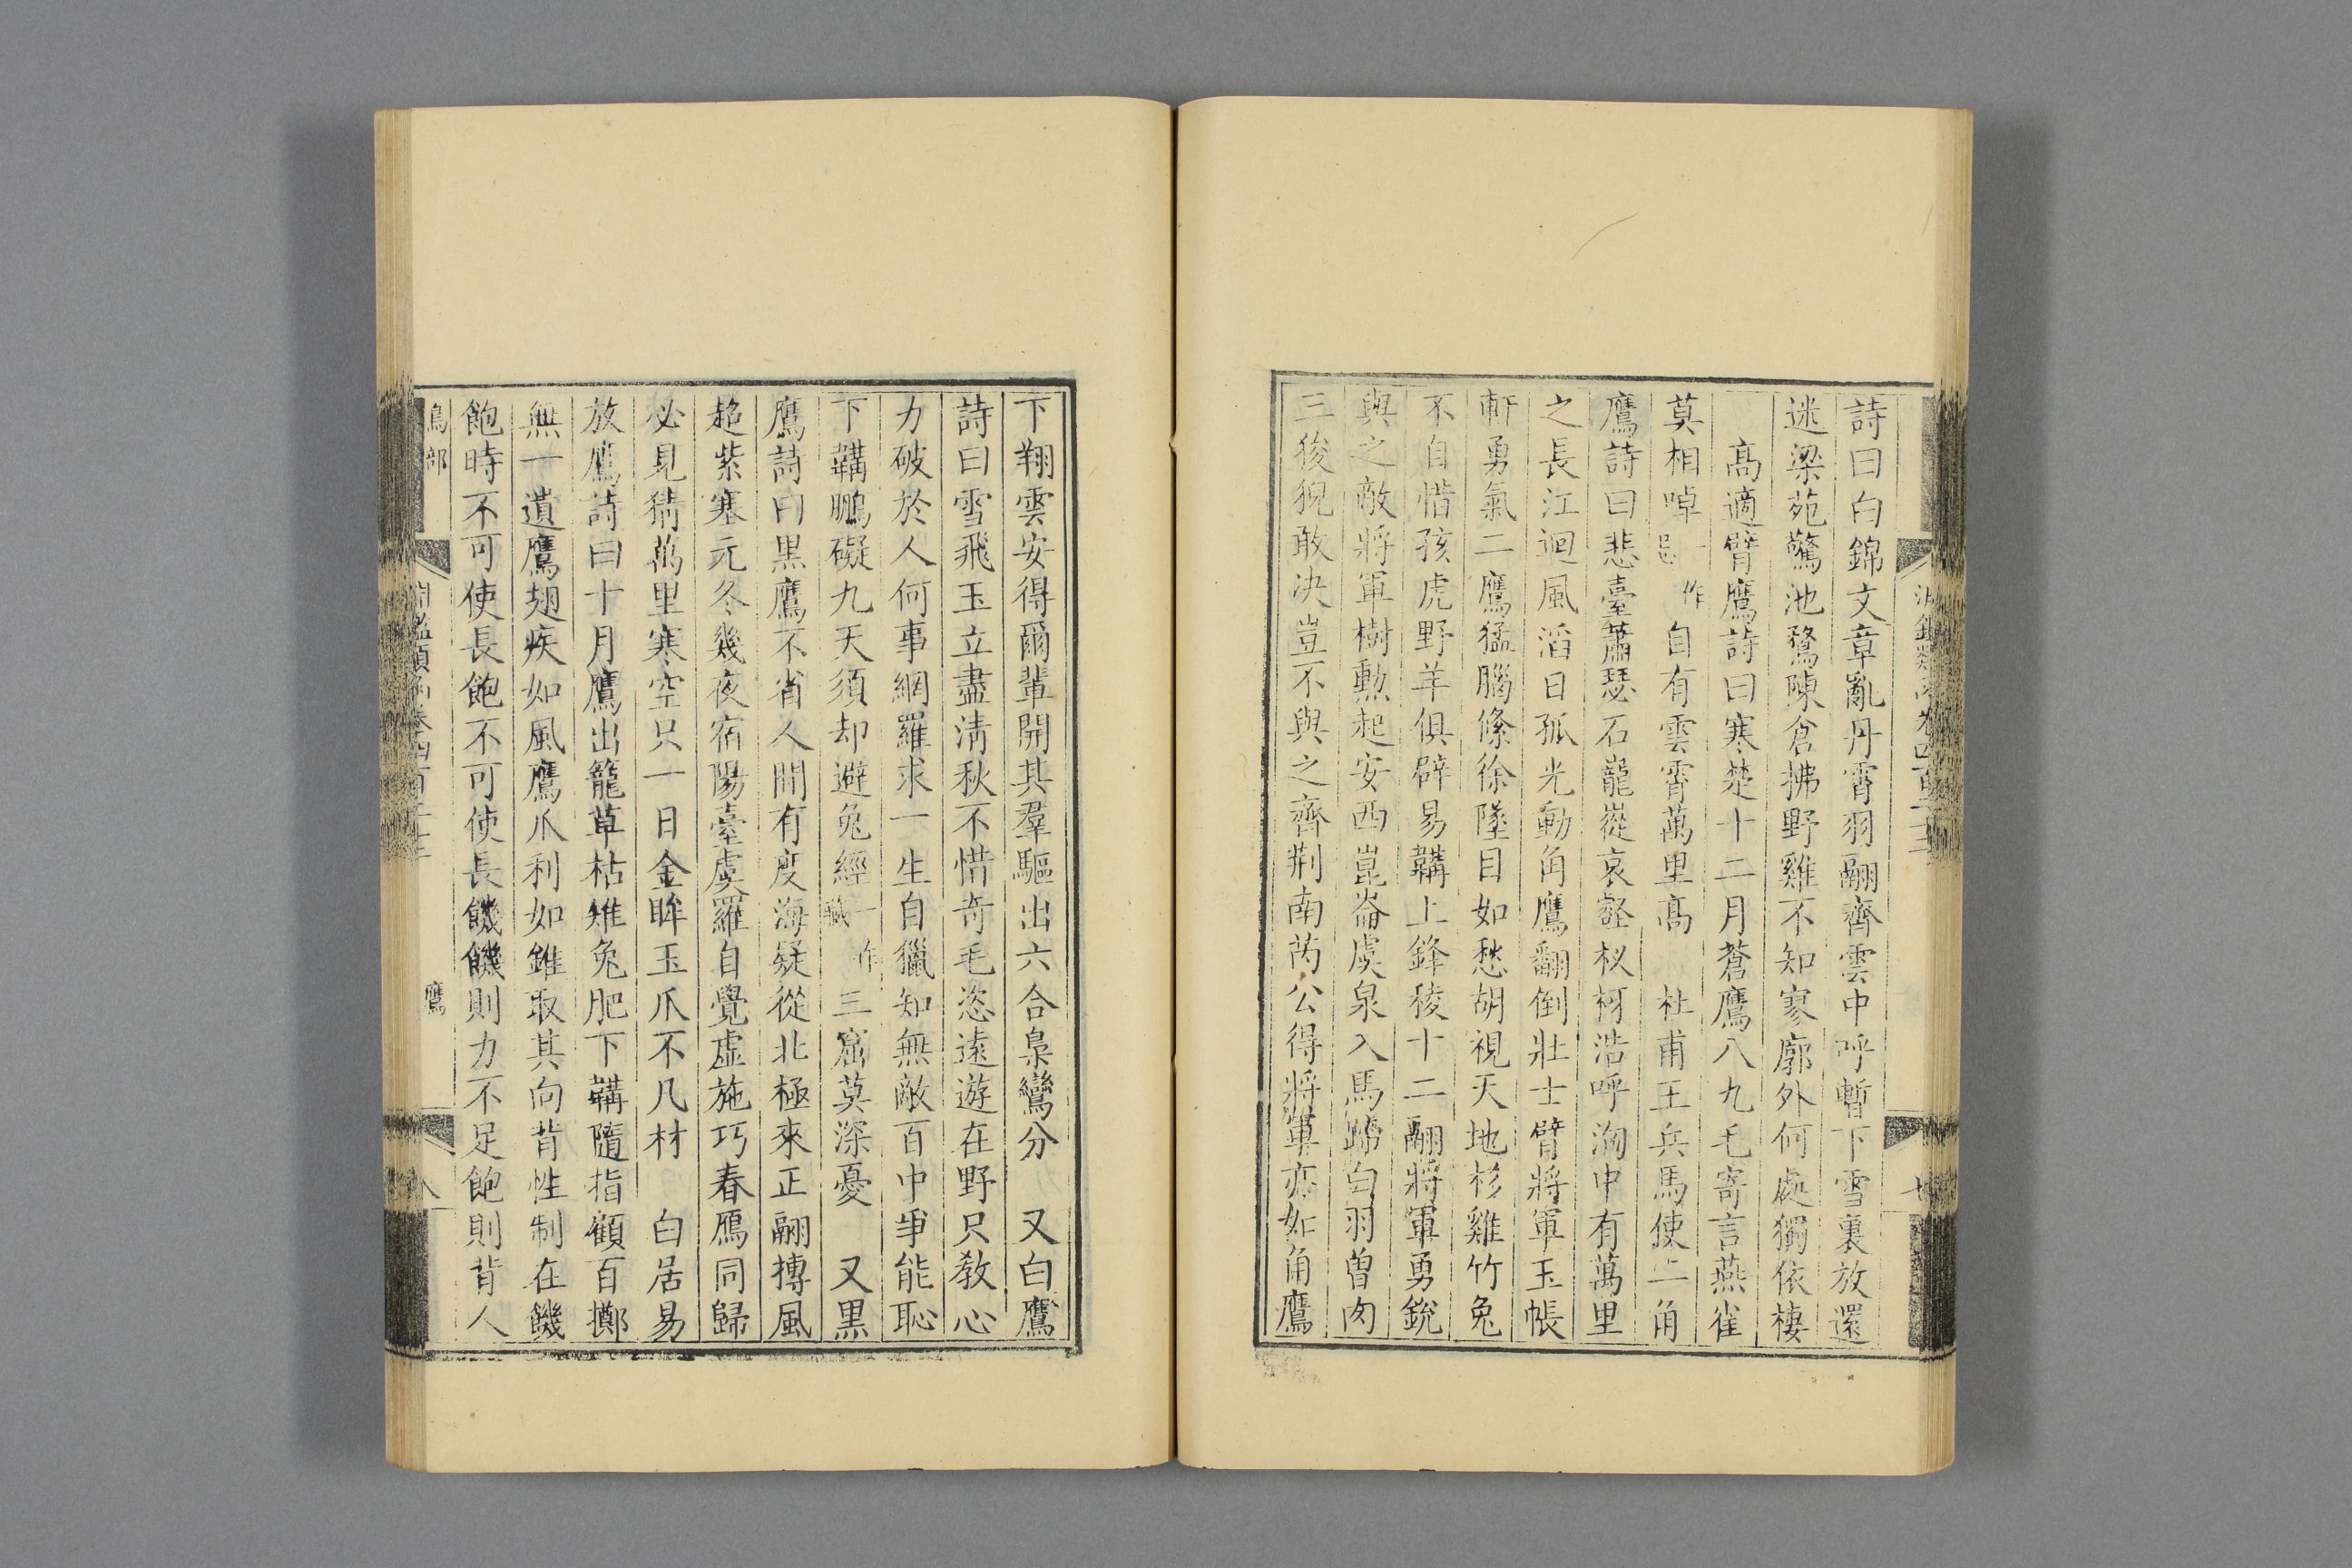 詩曰白錦文章亂丹霄羽翮齊雲中呼暫下雪裏放還
迷梁苑驚池鶩陳倉拂野雞不知寥廓外何處獨依棲
高適臂鷹詩曰寒楚十二月蒼鷹八九毛寄言燕雀
莫相啅一作忌自有雲霄萬里高 杜甫王兵馬使二角
鷹詩曰悲臺蕭瑟石巃嵸哀壑杈枒浩呼洶中有萬里
之長江迴風滔日孤光動角鷹翻倒壯士臂將軍玉帳
軒勇氣二鷹猛腦絛徐墜目如愁胡視天地杉雞竹兔
不自惜孩虎野羊俱辟易韝上鋒稜十二翮將軍勇銳
與之敵將軍樹勲起安西崑崙虞泉入馬蹄白羽曾肉
三狻猊敢决豈不與之齊荆南芮公得將軍亦如角鷹
下翔雲安得爾輩開其羣驅出六合梟鸞分 又白鷹
詩曰雪飛玉立盡淸秋不惜奇毛恣遠遊在野只敎心
力破於人何事網羅求一生自獵知無敵百中爭能恥
下韝鵬礙九天須却避兔經一作藏三窟莫深憂 又黒
鷹詩曰黒鷹不省人間有度海疑從北極來正翮摶風
超紫塞元冬幾夜宿陽臺虞羅自覺虛施巧春鴈同歸
必見猜萬里寒空只一日金眸玉爪不凡材 白居易
放鷹詩曰十月鷹出籠草枯雉兔肥下韝隨指顧百擲
無一遺鷹翅疾如風鷹爪利如錐取其向背性制在饑
飽時不可使長飽不可使長饑饑則力不足飽則背人
鳥部
鷹
八